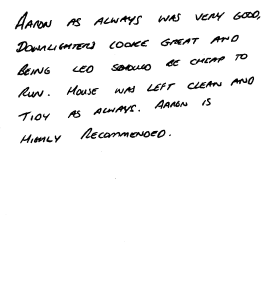 AARON AS ALWAYS WAS VERY GOOD,
DOWNLIGHTERS LOOKE GREAT AND
BEING LED SHOULD BE CHEAP TO
RUN. HOUSE WAS LEFT CLEAN AND
TIDY AS ALWAYS. AARON IS
HIGHLY RECOMMENDED.